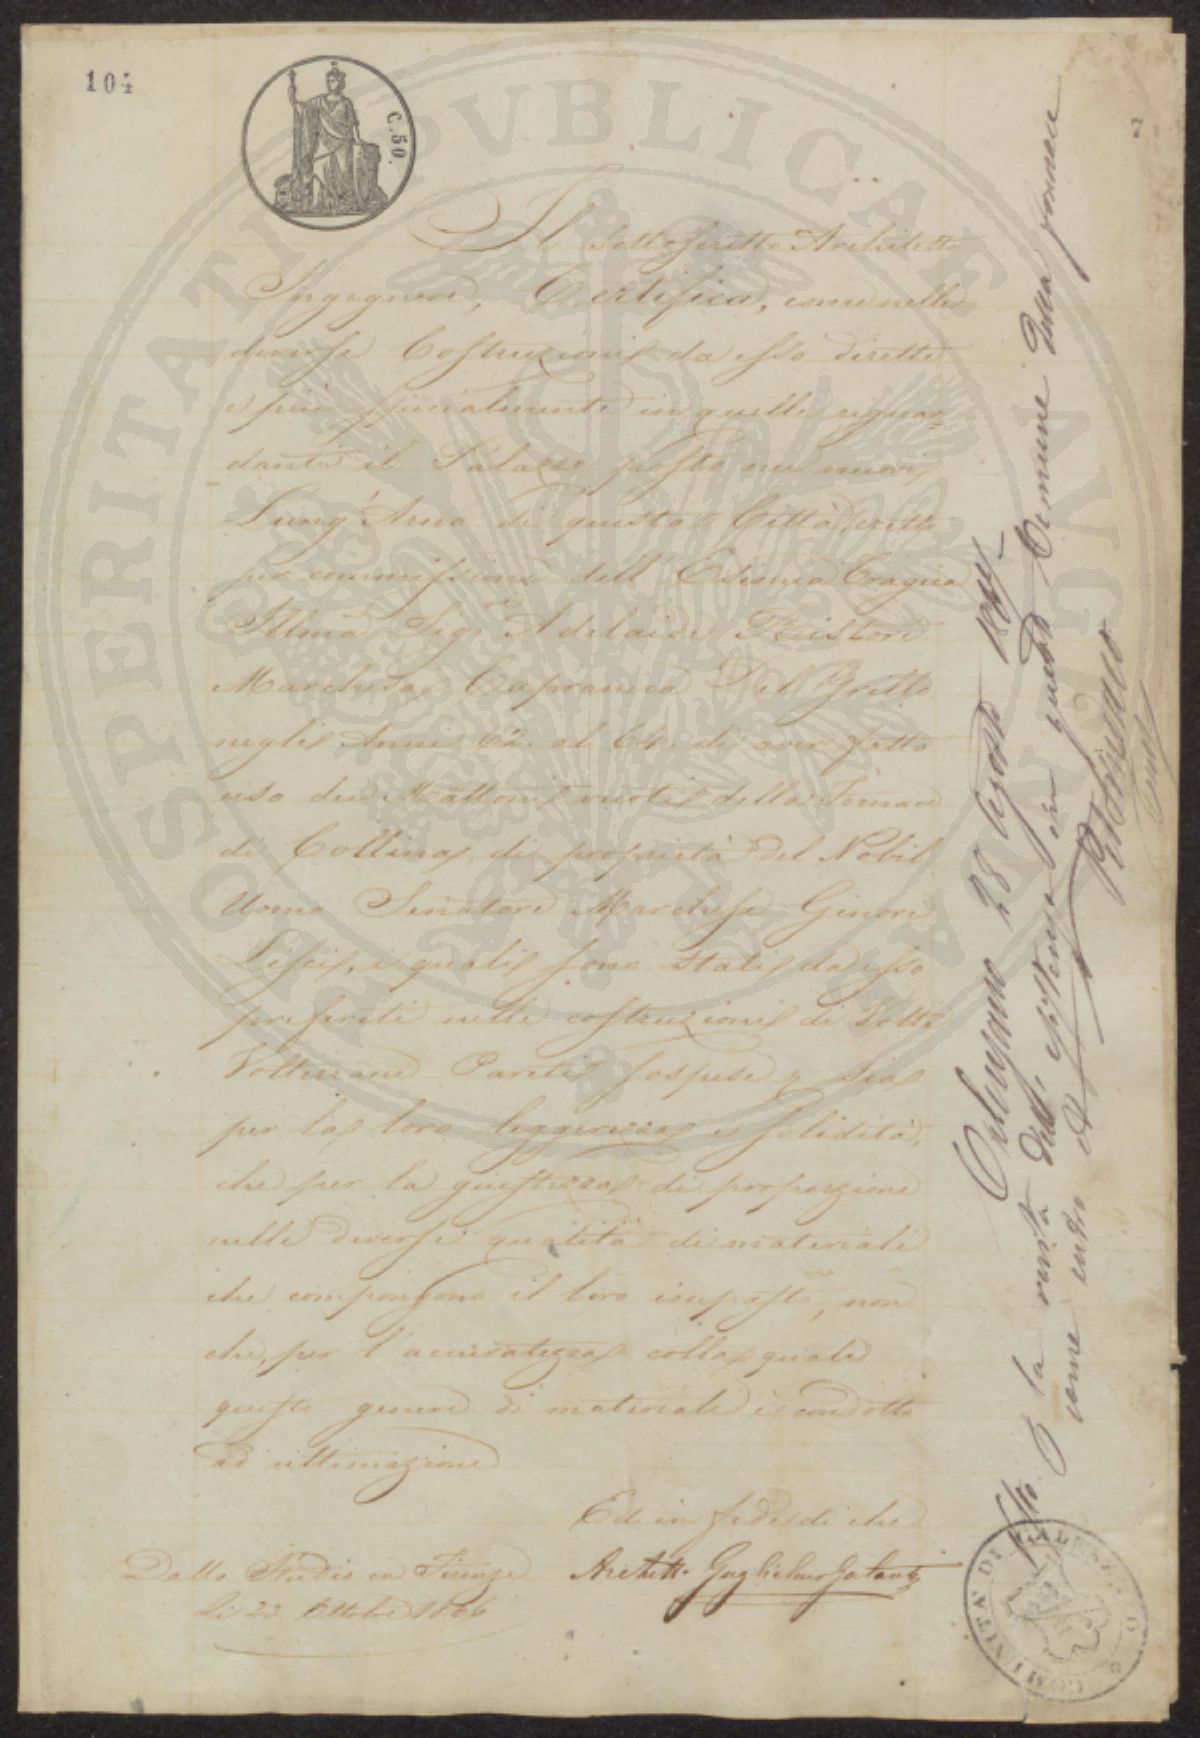 104
7
C. 50.
Il sottoscritto Architetto
Ingegnere, Certifica, come nelle
diverse Costruzioni da esso dirette
e più specialmente in quelle riguar-
dante il Palazzo posto nei nuovi
Lung'Arno di questa Città eretto
per commissione dell'Esimia Tragica
Illma Sigra Adelaide Ristori
Marchesa Capranica Del Grillo
negli Anni 62. al 64. di aver fatto
uso dei Mattoni vuoti della Fornace
di Collina, di proprietà del Nobil
Uomo Senatore Marchese Ginori
Lisci, i quali sono stati da esso
preferiti nelle costruzioni di Volte
Volterrane Pareti sospese, sia
per la loro leggerezza e solidità,
che per la giustezza di proporzione
nelle diverse qualità di materiali
che compongono il loro impasto, non
che, per l'accuratezza colla quale
questo genere di materiale è condotto
ad ultimazione
Ed in fede di che
Dallo Studio in Firenze
Li 23 Ottobre 1866
Archtto. Guglielmo Galanti
28 Agosto
la verità dell'esistenza in questo Comune della fornace
come
COMUNITÀ DI
SPERITATI PVBLICAE AVGENDAE